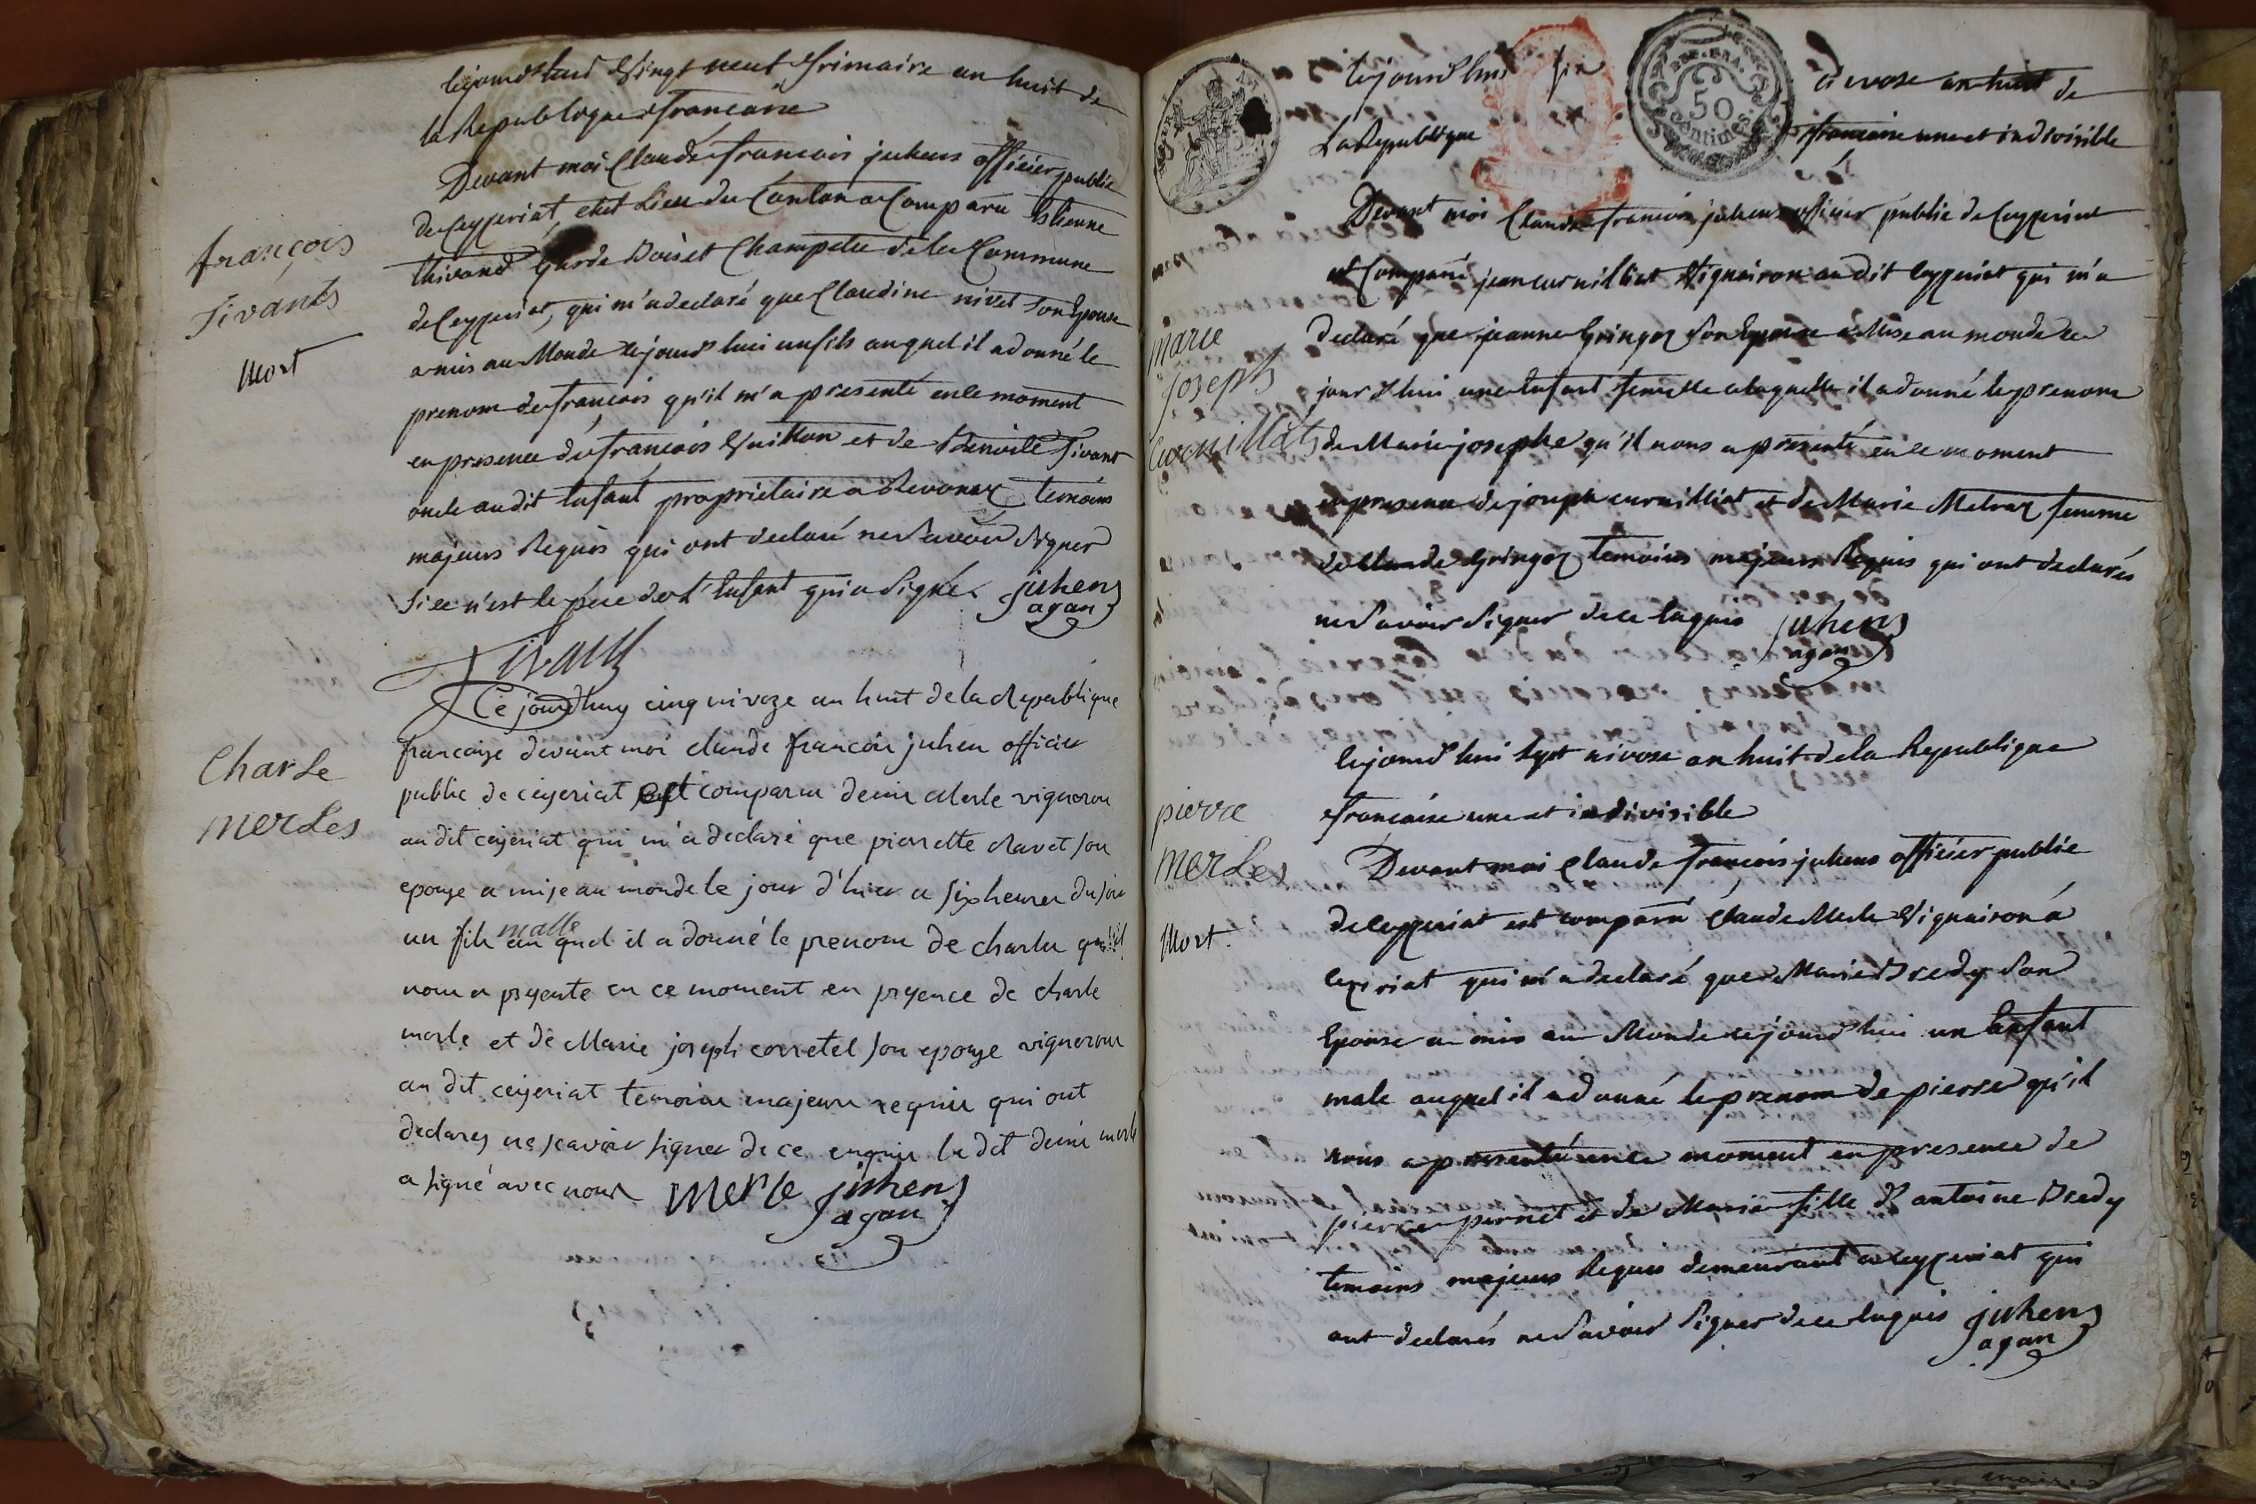 cejourd'hui Vingt neuf frimaire an huit de
la Republique francaise
Devant moi Claude francois juhens officier public
de Ceyzeriat, chef Lieu du Canton a Comparu Etienne
thivand Garde Bois et Champetre de la Commune
de Ceyzeriat, qui m'a declaré que Claudine nivet son Epouse
a mis au Monde cejourd'hui un fils auquel il a donné le
prenom de francois qu'il m'a presenté en le moment
en presence de francois Vuillon et de Benoit tivant
oncle audit Enfant proprietaire a Revonaz temoins
majeurs Requis qui ont declaré ne Savoir Signer
Si ce n'est le père de L'Enfant qui a Signé juhens
agan
françois
tivants
Mort
tivant
Ce jourdhuy cinq nivoze an huit de la Republique
francaize devant moi claude francois juhen officier
public de ceyseriat est comparu denis Merle vigneron
au dit ceyseriat qui m'a declaré que pierrette ravet son
epouze a mis au monde le jour d'hier a six heures du soir
un fils malle au quel il a donné le prenom de charle qu'il
nous a presenté en ce moment en presence de charle
merle et de Marie joseph corretel son epouze vigneron
au dit ceyseriat temoins majeurs requis qui ont
declarez ne scavoir signer de ce enquis le dit denis merle
a signé avec nous Merle juhens
agan
Charle
merles
cejourd'hui six nivose an huit de
La Republique francaise une et indivisible
REP. FRA.
50
centimes
Devant moi Claude francois juhens officier public de Ceyzeriat
est Comparu jean curnilliat Vigneiron au dit Ceyzeriat qui m'a
declaré que jeanne Gringoz Son Epouse a Mise au monde ce
jourd'hui une Enfant femelle a laquelle il a donné le prenom
de Marie josephe qu'il nous a presenté en le moment
en presence de joseph curnilliat et de Marie Melraz femme
de Claude Gringoz temoins majeurs Requis qui ont declarés
ne Savoir Signer de ce Enquis juhens
agan
marie
joseph
Curnillats
cejourd'hui Sept nivose an huit de la Republique
francaise une et indivisible
Devant moi Claude francois juhens officier public
de Ceyzeriat est comparu Claude Merle Vigneiron á
Ceziriat qui m'a declaré que Marie Bredy Son
Epouse a mis au Monde cejourd'hui un Enfant
male auquel il a donné le prenom de pierre qu'il
nous a presenté en ce moment en presence de
pierre pernet et de Marie fille d'antoine Bredy
temoins majeurs Requis demeurant a Ceyzeriat qui
ont declarés ne Savoir Signer de ce Enquis juhens
agan
pierre
merles
Mort.